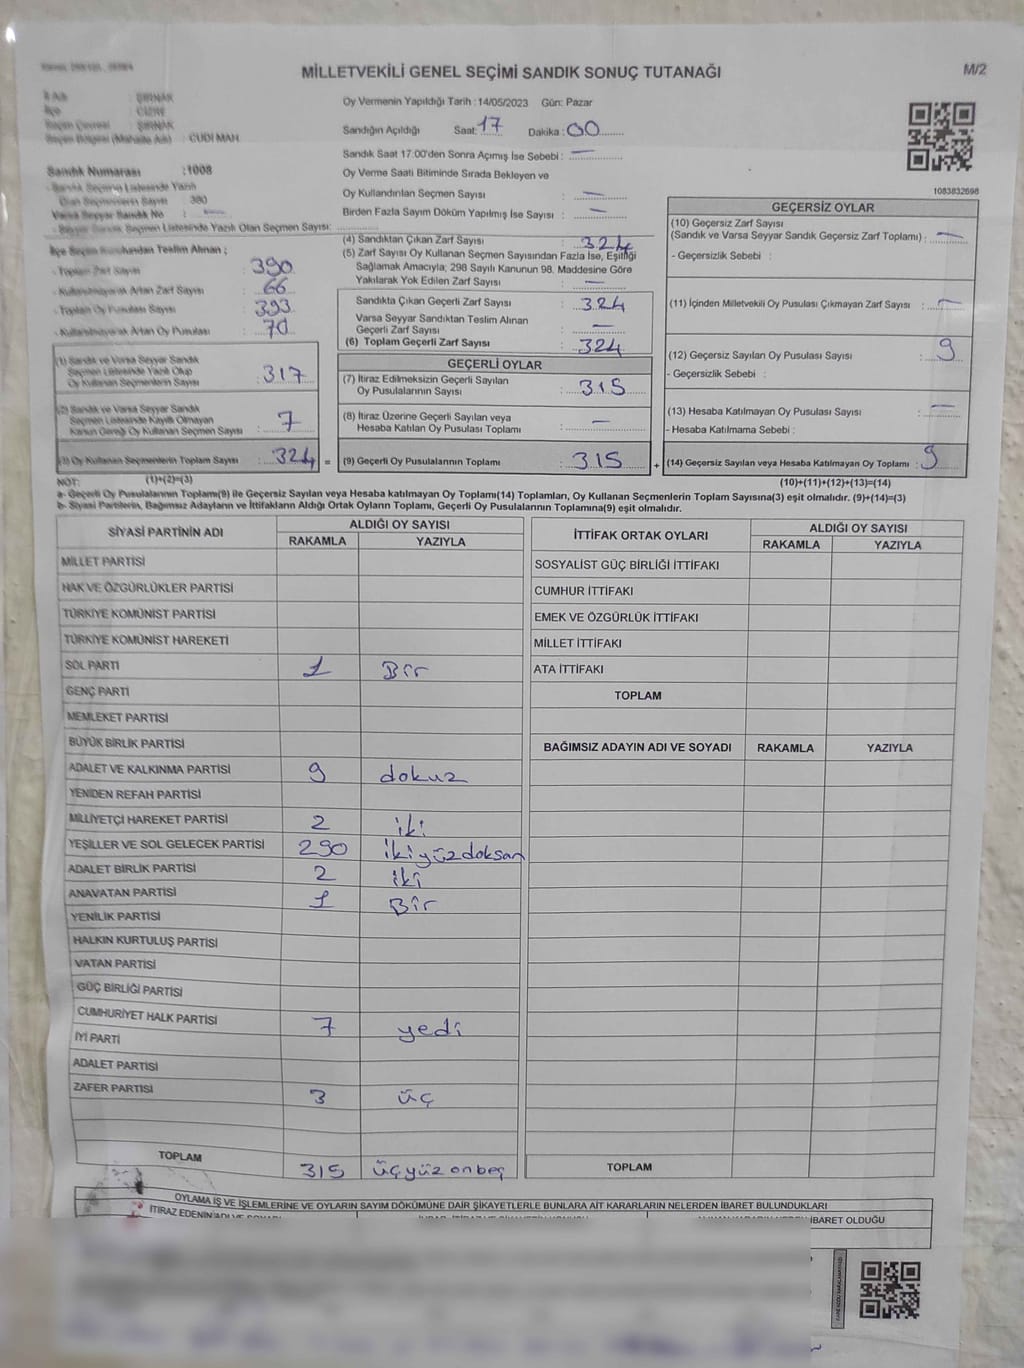 MİLLETVEKİLİ GENEL SEÇİMİ SANDIK SONUÇ TUTANAĞI
M/2
İl Adı : ŞIRNAK
İlçe : CİZRE
Seçim Çevresi : ŞIRNAK
Seçim Bölgesi (Mahalle Adı) : CUDİ MAH.
Oy Vermenin Yapıldığı Tarih : 14/05/2023 Gün: Pazar
Sandığın Açıldığı Saat: 17 Dakika : 00
Sandık Saat 17:00'den Sonra Açımış İse Sebebi : —
Oy Verme Saati Bitiminde Sırada Bekleyen ve
Oy Kullandırılan Seçmen Sayısı : —
Birden Fazla Sayım Döküm Yapılmış İse Sayısı : —
1083832698
Sandık Numarası :1008
- Sandık Seçmen Listesinde Yazılı
Olan Seçmenlerin Sayısı : 380
Varsa Seyyar Sandık No : —
- Seyyar Sandık Seçmen Listesinde Yazılı Olan Seçmen Sayısı:
İlçe Seçim Kurulundan Teslim Alınan ;
- Toplam Zarf Sayısı : 390
- Kullanılmayarak Artan Zarf Sayısı : 66
- Toplam Oy Pusulası Sayısı : 393
- Kullanılmayarak Artan Oy Pusulası : 70
(1) Sandık ve Varsa Seyyar Sandık
Seçmen Listesinde Yazılı Olup
Oy Kullanan Seçmenlerin Sayısı : 317
(2) Sandık ve Varsa Seyyar Sandık
Seçmen Listesinde Kayıtlı Olmayan
Kanun Gereği Oy Kullanan Seçmen Sayısı : 7
(3) Oy Kullanan Seçmenlerin Toplam Sayısı : 324 =
(4) Sandıktan Çıkan Zarf Sayısı : 324
(5) Zarf Sayısı Oy Kullanan Seçmen Sayısından Fazla İse, Eşitliği
Sağlamak Amacıyla; 298 Sayılı Kanunun 98. Maddesine Göre
Yakılarak Yok Edilen Zarf Sayısı : —
Sandıkta Çıkan Geçerli Zarf Sayısı : 324
Varsa Seyyar Sandıktan Teslim Alınan
Geçerli Zarf Sayısı : —
(6) Toplam Geçerli Zarf Sayısı : 324
GEÇERLİ OYLAR
(7) İtiraz Edilmeksizin Geçerli Sayılan
Oy Pusulalarının Sayısı : 315
(8) İtiraz Üzerine Geçerli Sayılan veya
Hesaba Katılan Oy Pusulası Toplamı : —
(9) Geçerli Oy Pusulalarının Toplamı : 315 +
GEÇERSİZ OYLAR
(10) Geçersiz Zarf Sayısı
(Sandık ve Varsa Seyyar Sandık Geçersiz Zarf Toplamı) : —
- Geçersizlik Sebebi :
(11) İçinden Milletvekili Oy Pusulası Çıkmayan Zarf Sayısı : —
(12) Geçersiz Sayılan Oy Pusulası Sayısı : 9
- Geçersizlik Sebebi :
(13) Hesaba Katılmayan Oy Pusulası Sayısı : —
- Hesaba Katılmama Sebebi :
(14) Geçersiz Sayılan veya Hesaba Katılmayan Oy Toplamı : 9
NOT: (1)+(2)=(3)
(10)+(11)+(12)+(13)=(14)
a- Geçerli Oy Pusulalarının Toplamı(9) ile Geçersiz Sayılan veya Hesaba katılmayan Oy Toplamı(14) Toplamları, Oy Kullanan Seçmenlerin Toplam Sayısına(3) eşit olmalıdır. (9)+(14)=(3)
b- Siyasi Partilerin, Bağımsız Adayların ve İttifakların Aldığı Ortak Oyların Toplamı, Geçerli Oy Pusulalarının Toplamına(9) eşit olmalıdır.
SİYASİ PARTİNİN ADI ALDIĞI OY SAYISI
RAKAMLA YAZIYLA
MİLLET PARTİSİ
HAK VE ÖZGÜRLÜKLER PARTİSİ
TÜRKİYE KOMÜNİST PARTİSİ
TÜRKİYE KOMÜNİST HAREKETİ
SOL PARTİ 1 Bir
GENÇ PARTİ
MEMLEKET PARTİSİ
BÜYÜK BİRLİK PARTİSİ
ADALET VE KALKINMA PARTİSİ 9 dokuz
YENİDEN REFAH PARTİSİ
MİLLİYETÇİ HAREKET PARTİSİ 2 iki
YEŞİLLER VE SOL GELECEK PARTİSİ 290 ikiyüzdoksan
ADALET BİRLİK PARTİSİ 2 iki
ANAVATAN PARTİSİ 1 Bir
YENİLİK PARTİSİ
HALKIN KURTULUŞ PARTİSİ
VATAN PARTİSİ
GÜÇ BİRLİĞİ PARTİSİ
CUMHURİYET HALK PARTİSİ 7 yedi
İYİ PARTİ
ADALET PARTİSİ
ZAFER PARTİSİ 3 üç
TOPLAM 315 üçyüzonbeş
İTTİFAK ORTAK OYLARI ALDIĞI OY SAYISI
RAKAMLA YAZIYLA
SOSYALİST GÜÇ BİRLİĞİ İTTİFAKI
CUMHUR İTTİFAKI
EMEK VE ÖZGÜRLÜK İTTİFAKI
MİLLET İTTİFAKI
ATA İTTİFAKI
TOPLAM
BAĞIMSIZ ADAYIN ADI VE SOYADI RAKAMLA YAZIYLA
TOPLAM
OYLAMA İŞ VE İŞLEMLERİNE VE OYLARIN SAYIM DÖKÜMÜNE DAİR ŞİKAYETLERLE BUNLARA AİT KARARLARIN NELERDEN İBARET BULUNDUKLARI
İTİRAZ EDENİN ADI VE SOYADI
İBARET OLDUĞU